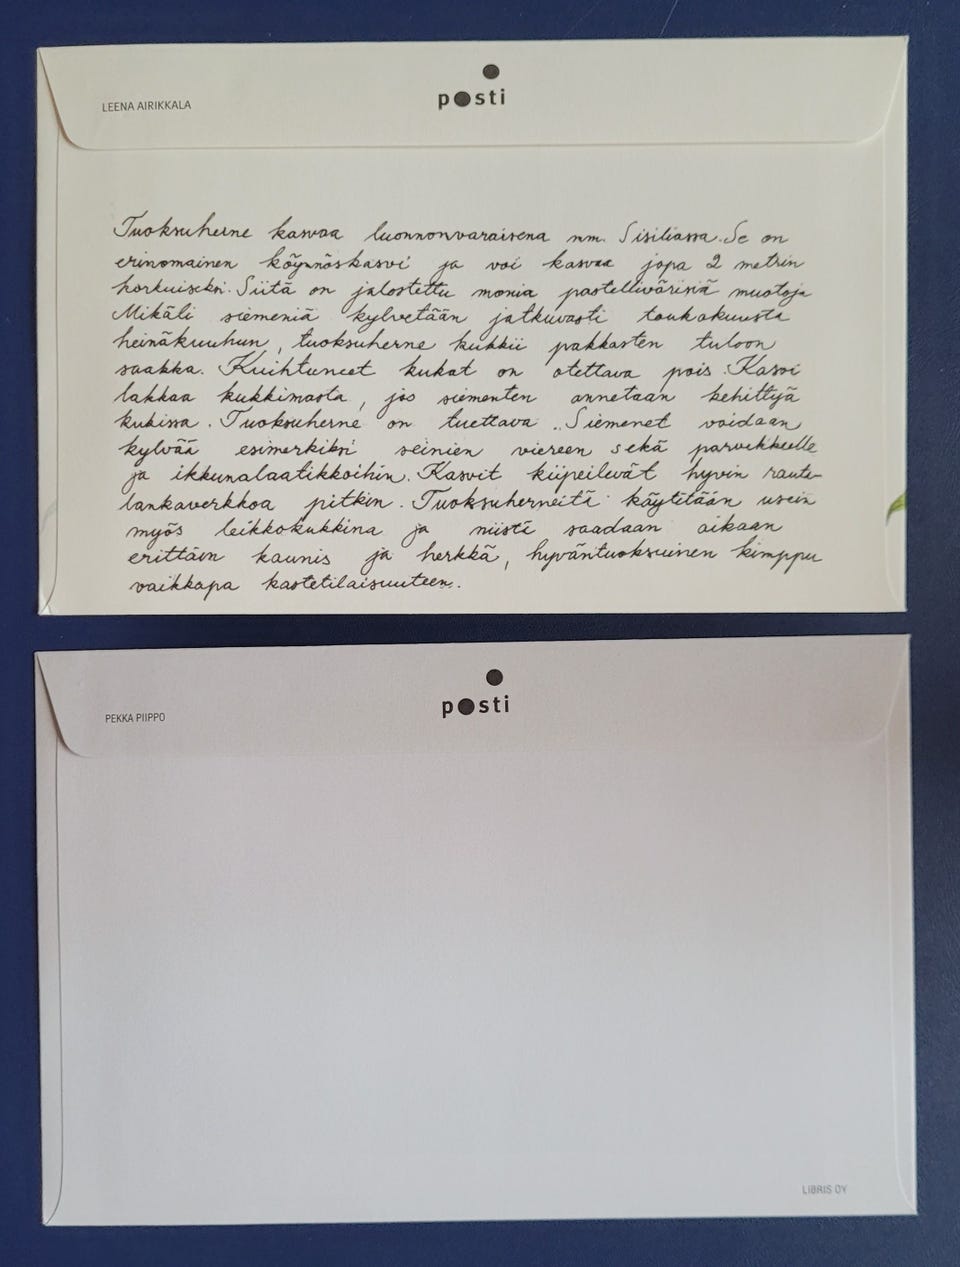 LEENA AIRIKKALA
posti
Tuoksuherne kasvaa luonnonvaraisena mm. Sisiliassa. Se on
erinomainen köynnöskasvi ja voi kasvaa jopa 2 metrin
korkuiseksi. Siitä on jalostettu monia pastellivärisiä muotoja
Mikäli siemeniä kylvetään jatkuvasti toukokuusta
heinäkuuhun, tuoksuherne kukkii pakkasten tuloon
saakka. Kuihtuneet kukat on otettava pois. Kasvi
lakkaa kukkimasta, jos siementen annetaan kehittyä
kukissa. Tuoksuherne on tuettava. Siemenet voidaan
kylvää esimerkiksi seinien viereen sekä parvekkeelle
ja ikkunalaatikkoihin. Kasvit kiipeilevät hyvin rauta-
lankaverkkoa pitkin. Tuoksuherneitä käytetään usein
myös leikkokukkina ja niistä saadaan aikaan
erittäin kaunis ja herkkä, hyväntuoksuinen kimppu
vaikkapa kastetilaisuuteen.
PEKKA PIIPPO
posti
LIBRIS OY